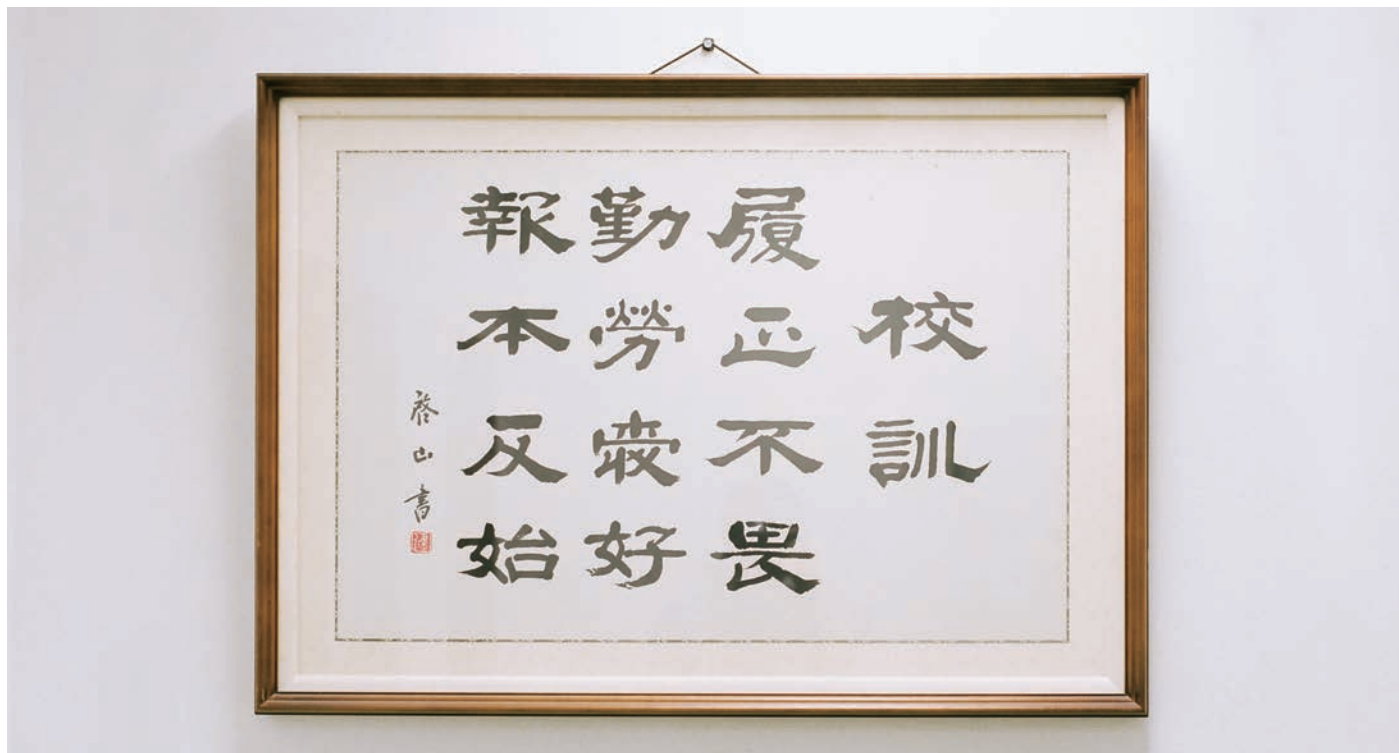 校訓
履正不畏
勤勞愛好
報本反始
啓山書